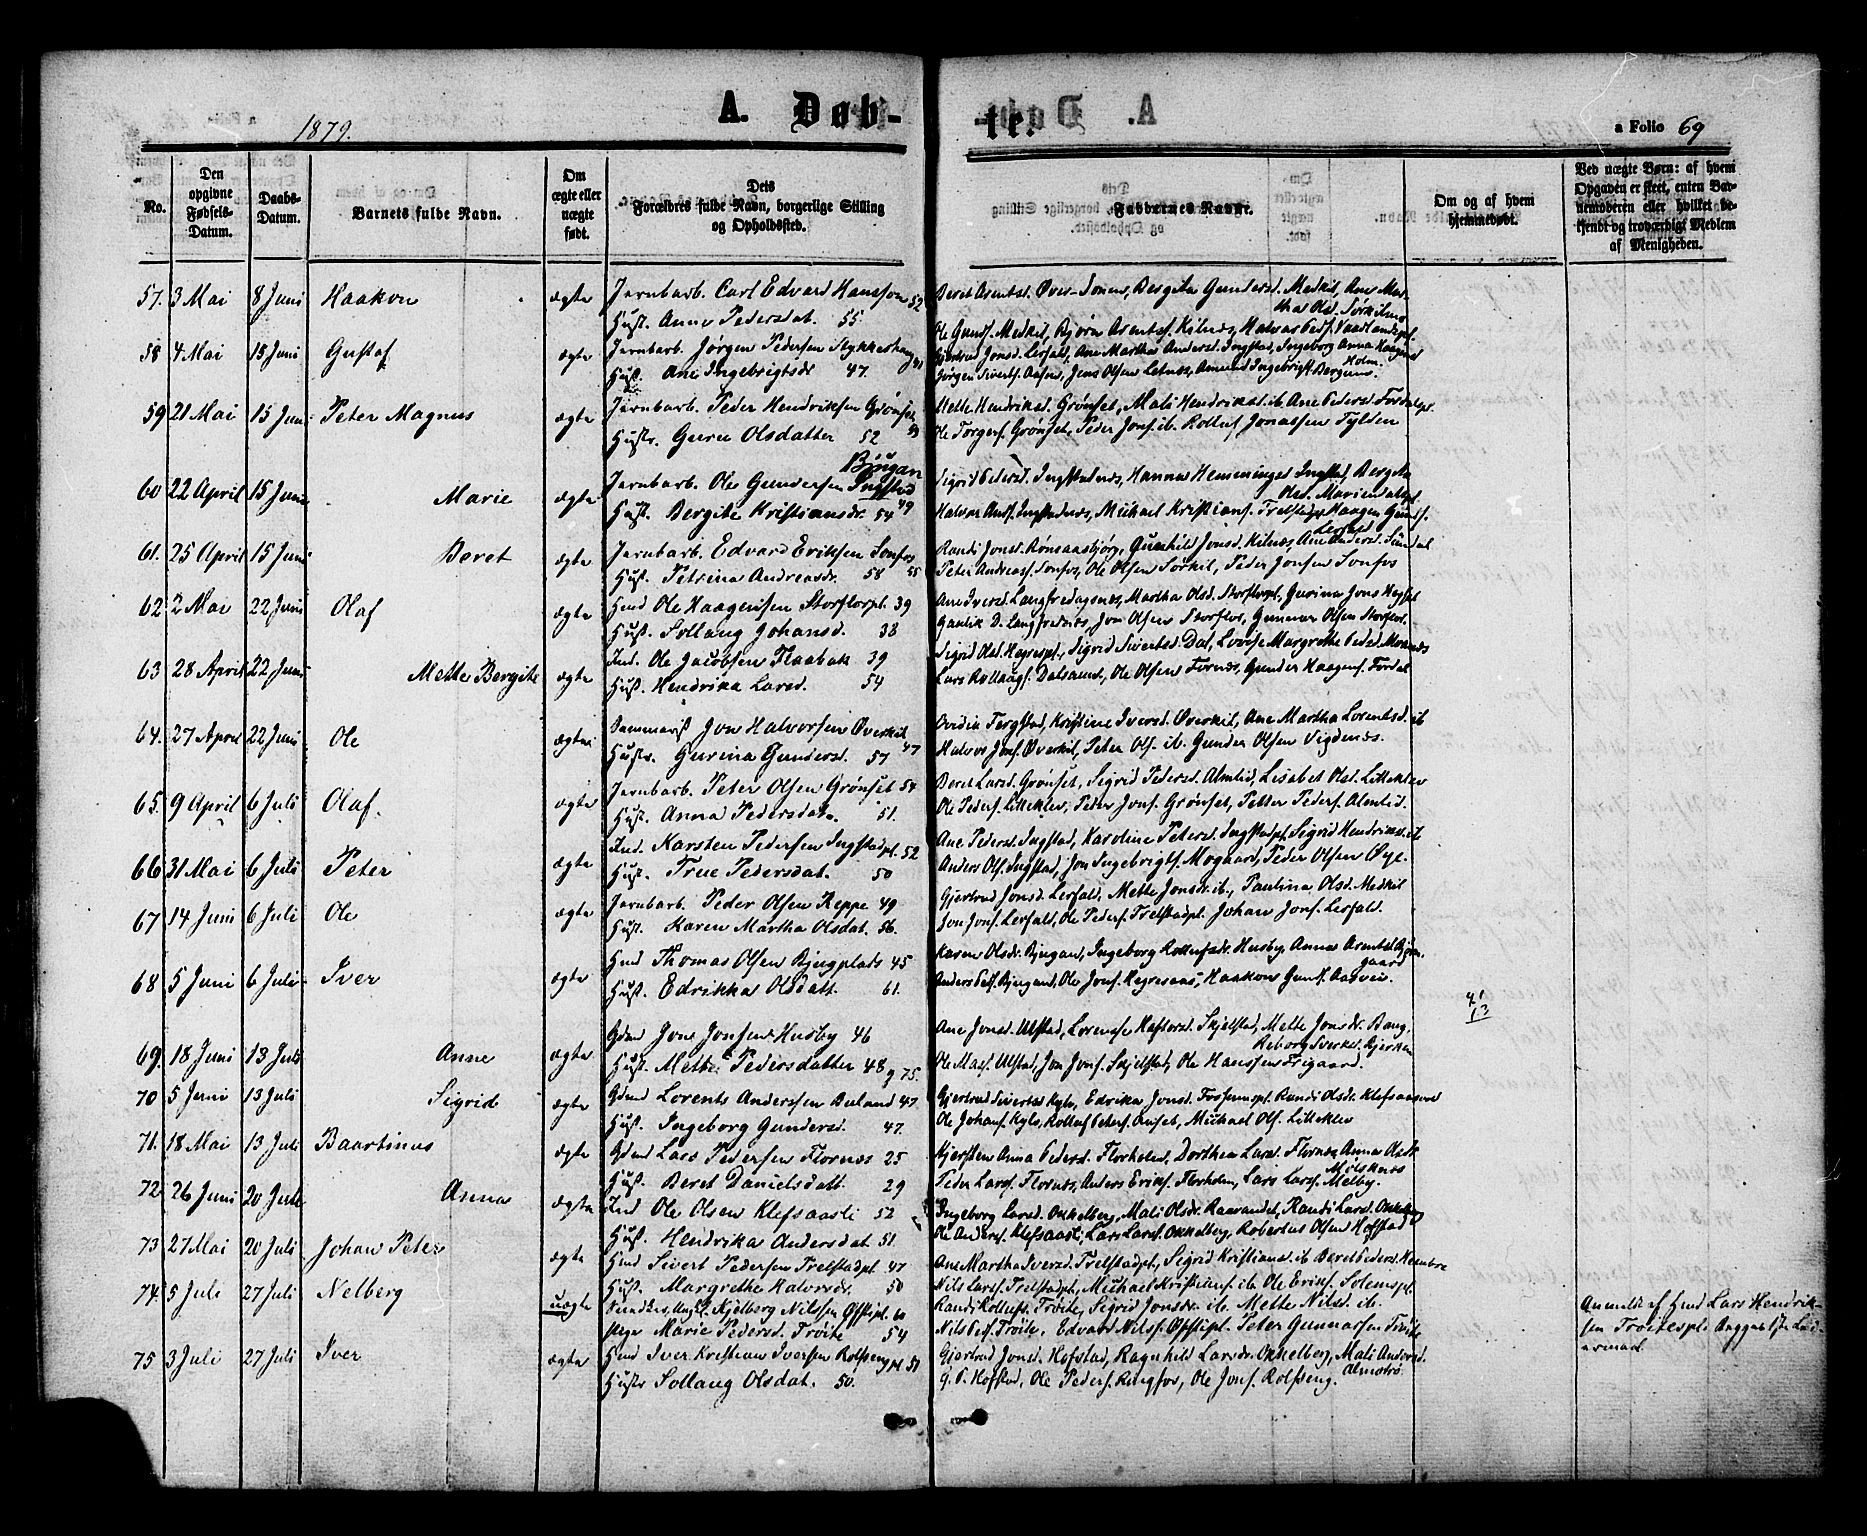 1879.
A. Døb-
te.
a Folio 69
No.
Den opgivne Fødsels-Datum.
Daabs-Datum.
Barnets fulde Navn.
Om ægte eller uægte født.
Dets Forældres fulde Navn, borgerlige Stilling og Opholdssted.
Faddernes Navne.
Om og af hvem hjemmedøbt.
Ved uægte Børn: af hvem Opgaven er skeet, enten Barnemoderen eller hvilket bekjendt og troværdigt Medlem af Menigheden.
57. 3 Mai 8 Juni Haakon ægte Jernbarb. Carl Edvard Hansson 52
Hust. Anne Pedersdat. 55
Beret Arentsd. Øver-Sonen, Bergita Gundersd. Medkil, Ane Mar-
tha Olsd. Sørkilnes
Ole Gundf. Medkil, Bjørn Arentsf. Kilnes, Halvar Pedf. Vaadlandspl.
58 4 Mai 15 Juni Gustaf ægte Jernbarb. Jørgen Pedersen 41
Hust. Ane Ingebrigtsdr 47.
Gjertrud Jonsd. Lerfald, Ane Martha Andersd. Ingstad, Ingeborg Anna
Jørgen Sivertf. Aasen, Jens Olsen Letnes, Amund Ingebrigtf. Holm.
59 21 Mai 15 Juni Peter Magnus ægte Jernbarb. Peder Hendriksen Grønset 49
Hustr. Guru Olsdatter 52
Mette Hendriksd. Grønset, Mali Hendriksd. ib. Ane Pedersd. Fordalspl.
Ole Torgerf. Grønset, Peder Jonf. ib. Rolluf Jonassen Fylden
60 22 April 15 Juni Marie ægte Jernbarb. Ole Gundersen Ingstad Bjugan 49
Hust. Bergite Kristiansdr. 54
Sigrid Pedersd. Ingstadnes, Hanna Hemmingsd. Ingstad, Bergita
Olsd. Mariendalspl.
Halvar Andf. Ingstadnes, Michael Kristianf. Trelstadpl. Haagen Gundf.
Lerfald
61. 25 April 15 Juni Beret ægte Jernbarb. Edvard Eriksen Sonfos 55
Hust. Petrina Andreasdr. 58
Randi Jonsd. Rømaasbjørg, Gunhild Jonsd. Kilnes, Ane Andersd. Sundal
Peter Andreasf. Sonfos, Ole Olsen Sørkil, Peder Jonsen Sonfos
62 2 Mai 22 Juni Olaf ægte Hmd Ole Haagensen Storflorpl. 39
Hust. Sollaug Johansd. 38
Ane Iversd. Langfredagsnes, Martha Olsd. Storflorpl, Gurina Jons
Gunlik D. Langfrednes, Jon Olsen Storflor, Gunnar Olsen Storflor.
63 28 April 22 Juni Mette Bergite ægte Ind. Ole Jacobsen Flaabak 39
Hust. Hendrika Larsd. 54
Sigrid Olsd. Hegrespl, Sigrid Sivertsd. Dal, Lovise Margrethe Pedersd. Moxnes
Lars Rollaugf. Dalsaunet, Ole Olsen Fornes, Gunder Haagenf. Fordal
64. 27 April 22 Juni Ole ægte Sammarit Jon Halvorsen Øverkil 47
Hustr. Gurina Gundersd. 57
Ovidia Fergstad, Kristine Iversd. Øverkil, Ane Martha Lorentsd. ib
Halvor Jonf. Øverkil, Peter Olf. ib. Gunder Olsen Vigdenes.
65. 9 April 6 Juli Olaf. ægte Jernbarb. Peter Olsen Grønset 54
Hust. Anna Pedersdat. 51.
Beret Larsd. Grønset, Sigrid Pedersd. Almlid, Lisabet Olsd. Litleklev
Ole Pederf. Litleklev, Peder Jonf. Grønset, Petter Pederf. Almlid.
66 31 Mai 6 Juli Peter ægte Ind. Karsten Pedersen Ingstadpl. 52
Hust. True Pedersdat. 50
Ane Pedersd. Ingstad, Karoline Petersd. Ingstadpl. Sigrid Hendriksd. ib
Anders Olf. Ingstad, Jon Ingebrigtf. Mogaard, Peder Olsen Øye.
67 14 Juni 6 Juli Ole ægte Jernbarb. Peder Olsen Reppe 49
Hust. Karen Martha Olsdat. 56.
Gjertrud Jonsd. Lerfald, Mette Jonsdr. ib., Paulina Olsd. Medkil
Jon Jonf. Lerfald, Ole Pederf. Trelstadpl. Johan Jonf. Lerfald.
68 5 Juni 6 Juli Iver ægte Hmd Thomas Olsen Bjugplads 45
Hust. Edrikka Olsdatt. 61.
Karen Olsdr. Bjugan, Ingeborg Rollufsdr. Husby, Anna Arentsd. Bjøra-
gaard
Anders Pedf. Bjugand, Ole Jonf. Hegresaas, Haakon Gunf. Aasvei.
69. 18 Juni 13 Juli Anne ægte Gdmd Jon Jonsen Husby 46
Hust. Mette Pedersdatter 48 g 75.
Ane Jonsd. Ulstad, Lorense Haftorsd. Skjelstad, Mette Jonsdr. Bang.
Reborg Sverksd. Bjerkan
Ole Masf. Ulstad, Jon Jonf. Skjelstad, Ole Hanssen Frigaard.
70 5 Juni 13 Juli Sigrid ægte Gdmd Lorents Anderssen Buland 47
Hust. Ingeborg Gundersd. 47.
Gjertrud Sivertsd. Kylo, Edrika Jonsd. Fossempl. Randi Olsdr. Klefsaasvd
Ole Johanf. Kylo, Rolluf Peterf. Anset, Michael Olf. Litleklev
71. 18 Mai 13 Juli Baartinus ægte Gdmd Lars Pedersen Flornes 25
Hust. Beret Danielsdatt. 29
Kjersten Anna Pedersd. Florholm, Dorthea Larsd. Flornes, Anna Olsd.
Mølsknes
Peder Larsf. Flornes, Anders Erikf. Florholm, Lars Larsf. Melby.
72. 26 Juni 20 Juli Anna ægte Ind Ole Olsen Klefsaasli 52
Hust. Hendrika Andersdat. 51.
Ingeborg Larsd. Okkelberg, Mali Olsdr. Raavandet, Randi Larsd. Okkelberg
Ole Andersf. Klefsaasli, Lars Larsf. Okkelberg, Robertus Olsen Hofstad
73 27 Mai 20 Juli Johan Peter ægte Hmd Sivert Pedersen Trelstadpl. 47
Hust. Margrethe Halvorsdr. 50
Ane Martha Iversd. Trelstadpl, Sigrid Kristiansd. ib. Beret Pedersd. Hembre
Nils Larsf. Trelstadpl, Michael Kristianf. ib. Ole Erikf. Solemspl.
74. 5 Juli 27 Juli Nelberg uægte Kjelberg Nilssen
Pige Marie Pedersd. Trøite 54
Randi Rollufs. Trøite, Sigrid Jonsdr. ib. Mette Nilsd. ib.
Nils Pedf. Trøite, Edvard Nilsf. Peter Gunnarsen Trøite
Anmeldt af Hmd Lars Hendrik-
sen Trøitespl.
75 3 Juli 27 Juli Iver ægte Hmd Iver Kristian Iversen Rolfsengpl. 51
Hustr Sollaug Olsdat. 50.
Gjertrud Jonsd. Hofstad, Ragnhild Larsdr. Okkelberg, Mali Andersd.
Almostrø.
G. P. Hofstad, Ole Pederf. Ringfos, Ole Jonf. Rolfseng.